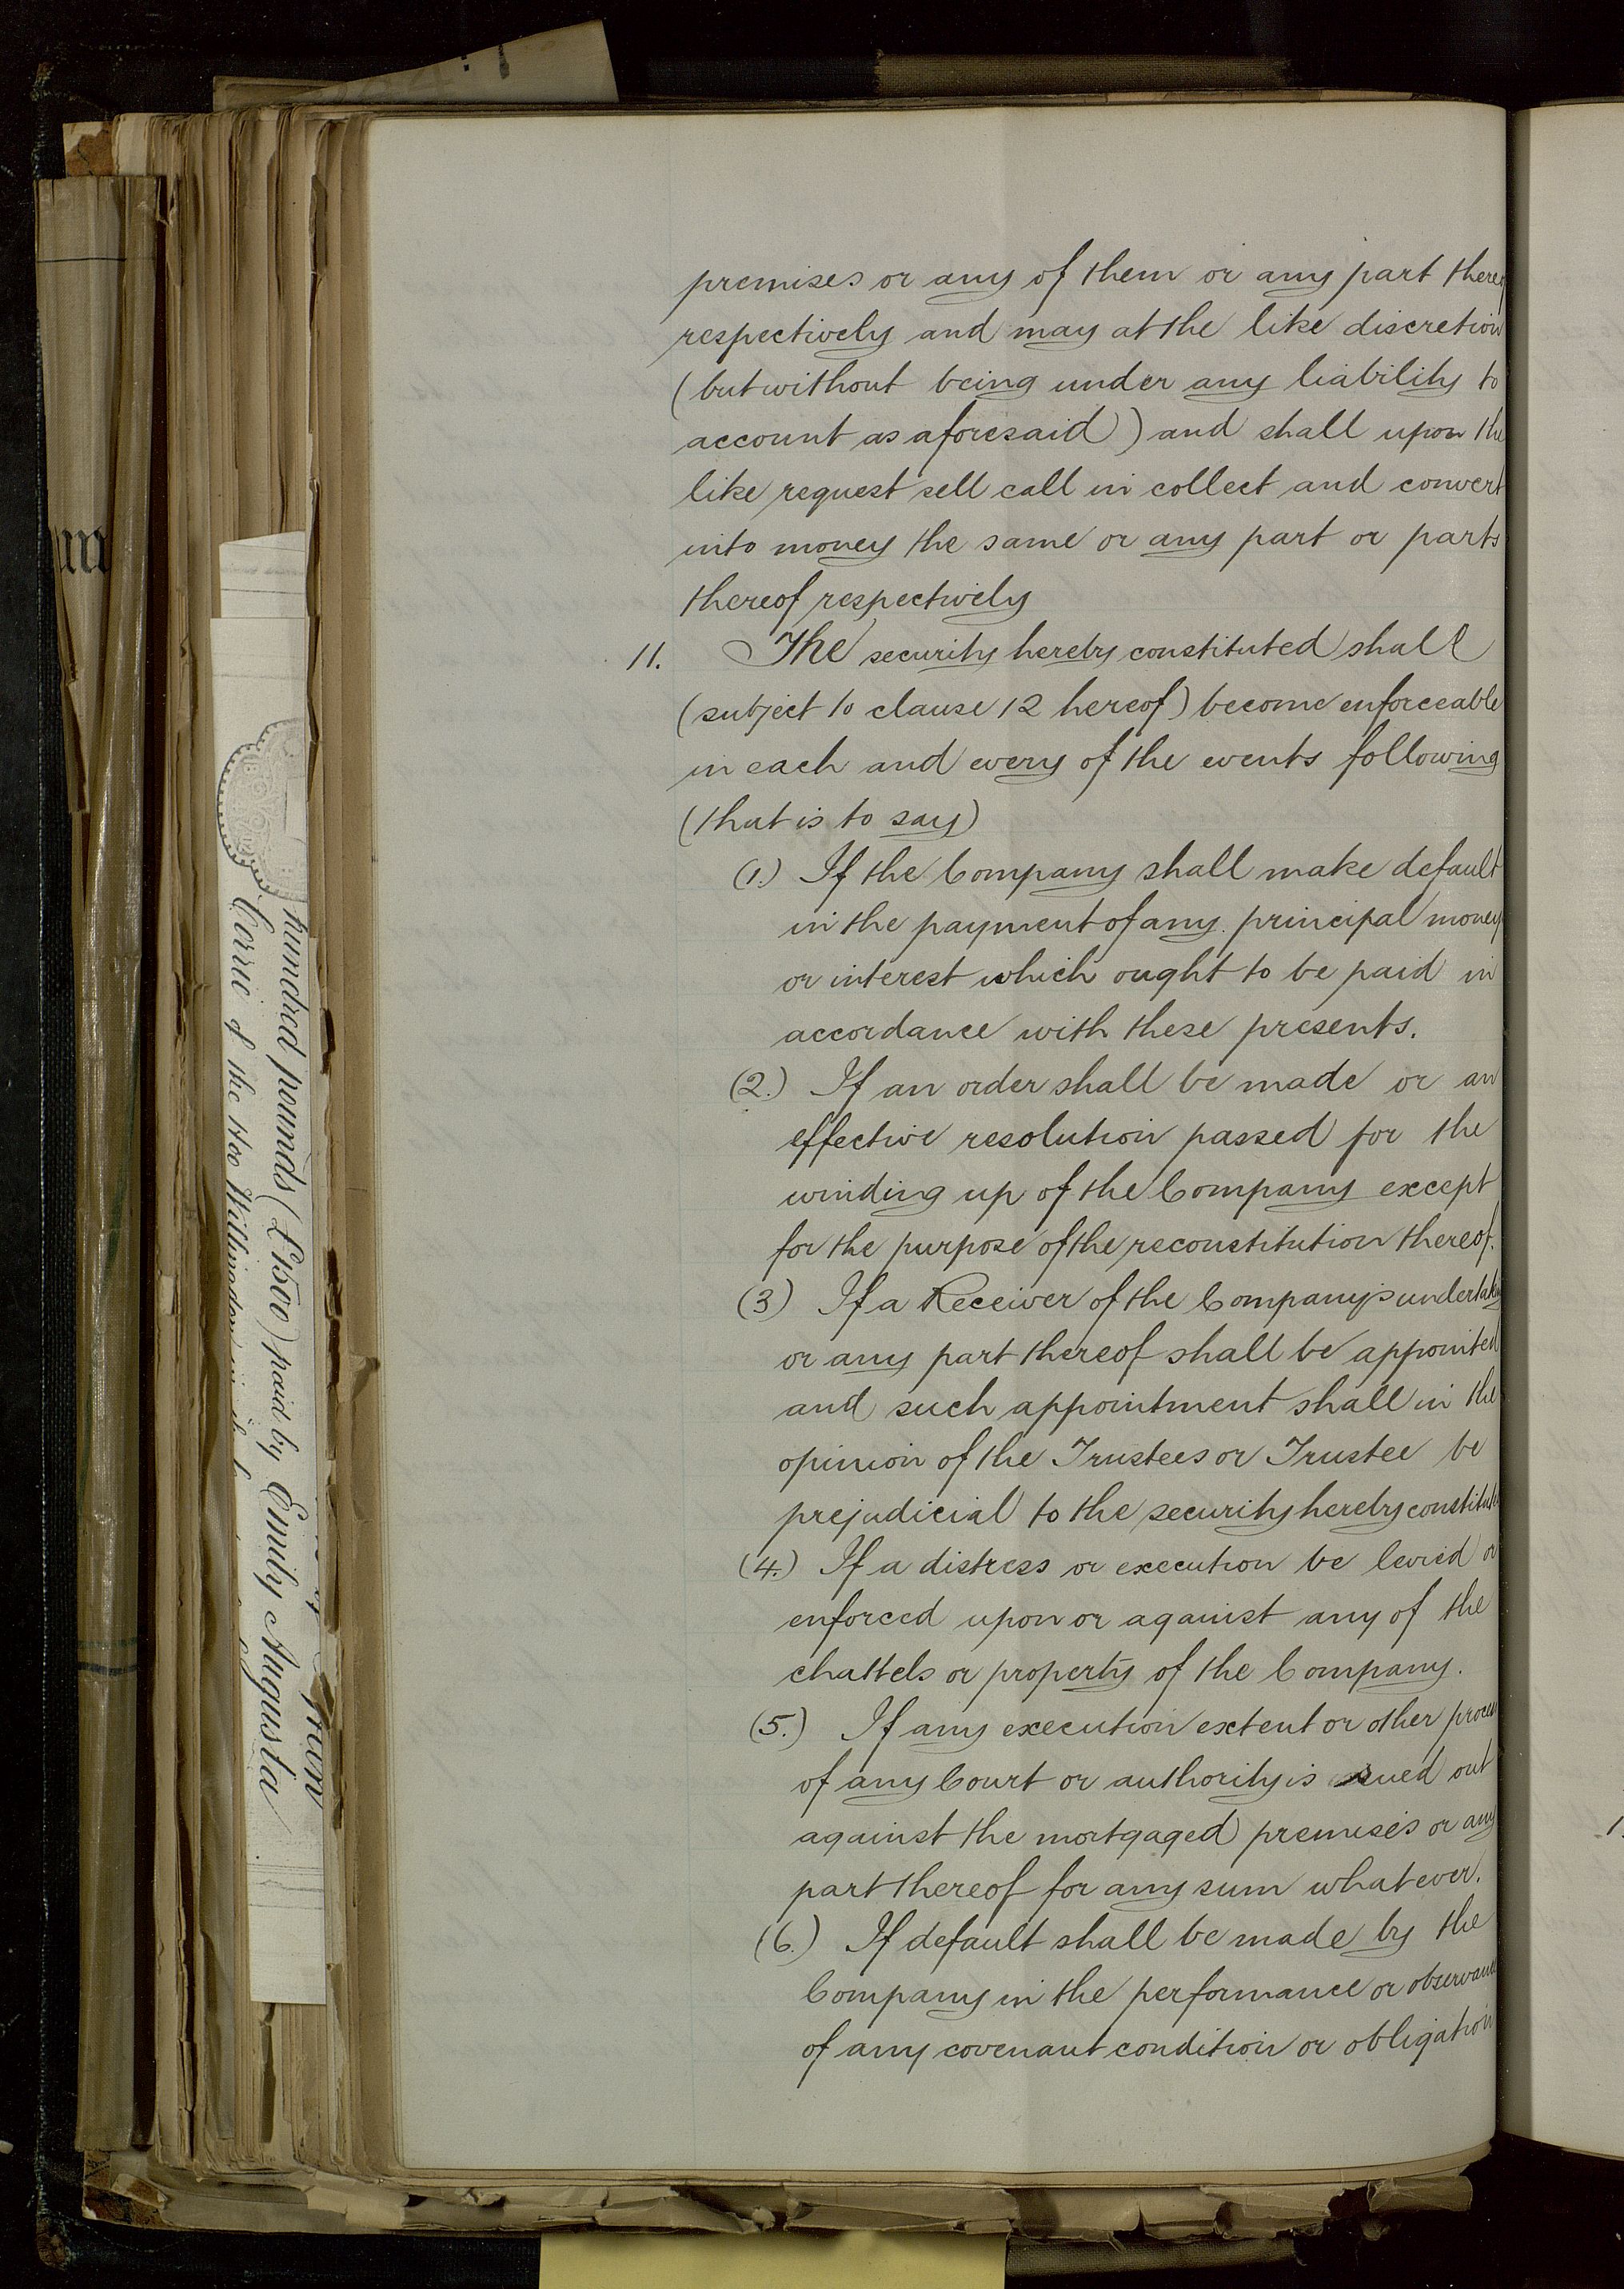 premises or any of them or any part thereof
respectively and may at the like discretion
(but without being under any liability to
account as aforesaid) and shall upon the
like request sell call in collect and convert
into money the same or any part or parts
thereof respectively
11. The security hereby constituted shall
(subject to clause 12 hereof) become enforceable
in each and every of the events following
(that is to say)
(1.) If the Company shall make default
in the payment of any principal money
or interest which ought to be paid in
accordance with these presents.
(2.) If an order shall be made or an
effective resolution passed for the
winding up of the Company except
for the purpose of the reconstitution thereof.
(3) If a Receiver of the Company's undertaking
or any part thereof shall be appointed
and such appointment shall in the
opinion of the Trustees or Trustee be
prejudicial to the security hereby constituted
(4.) If a distress or execution be levied or
enforced upon or against any of the
chattels or property of the Company.
(5.) If any execution extent or other process
of any Court or authority is sued out
against the mortgaged premises or any
part thereof for any sum whatever.
(6.) If default shall be made by the
Company in the performance or observance
of any covenant condition or obligation
hundred pounds (£1500) paid by Emily Augusta
Corrie of the Hoo Willingdon